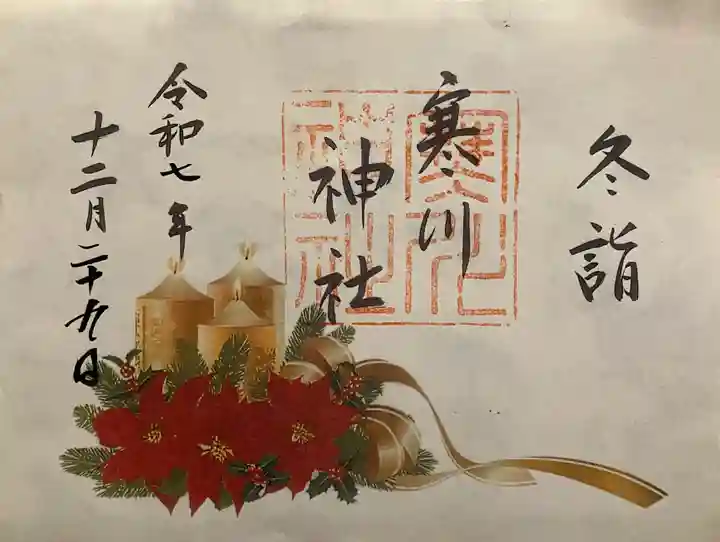 冬詣
寒川
神社
令和七年
十二月二十九日
寒川
神社